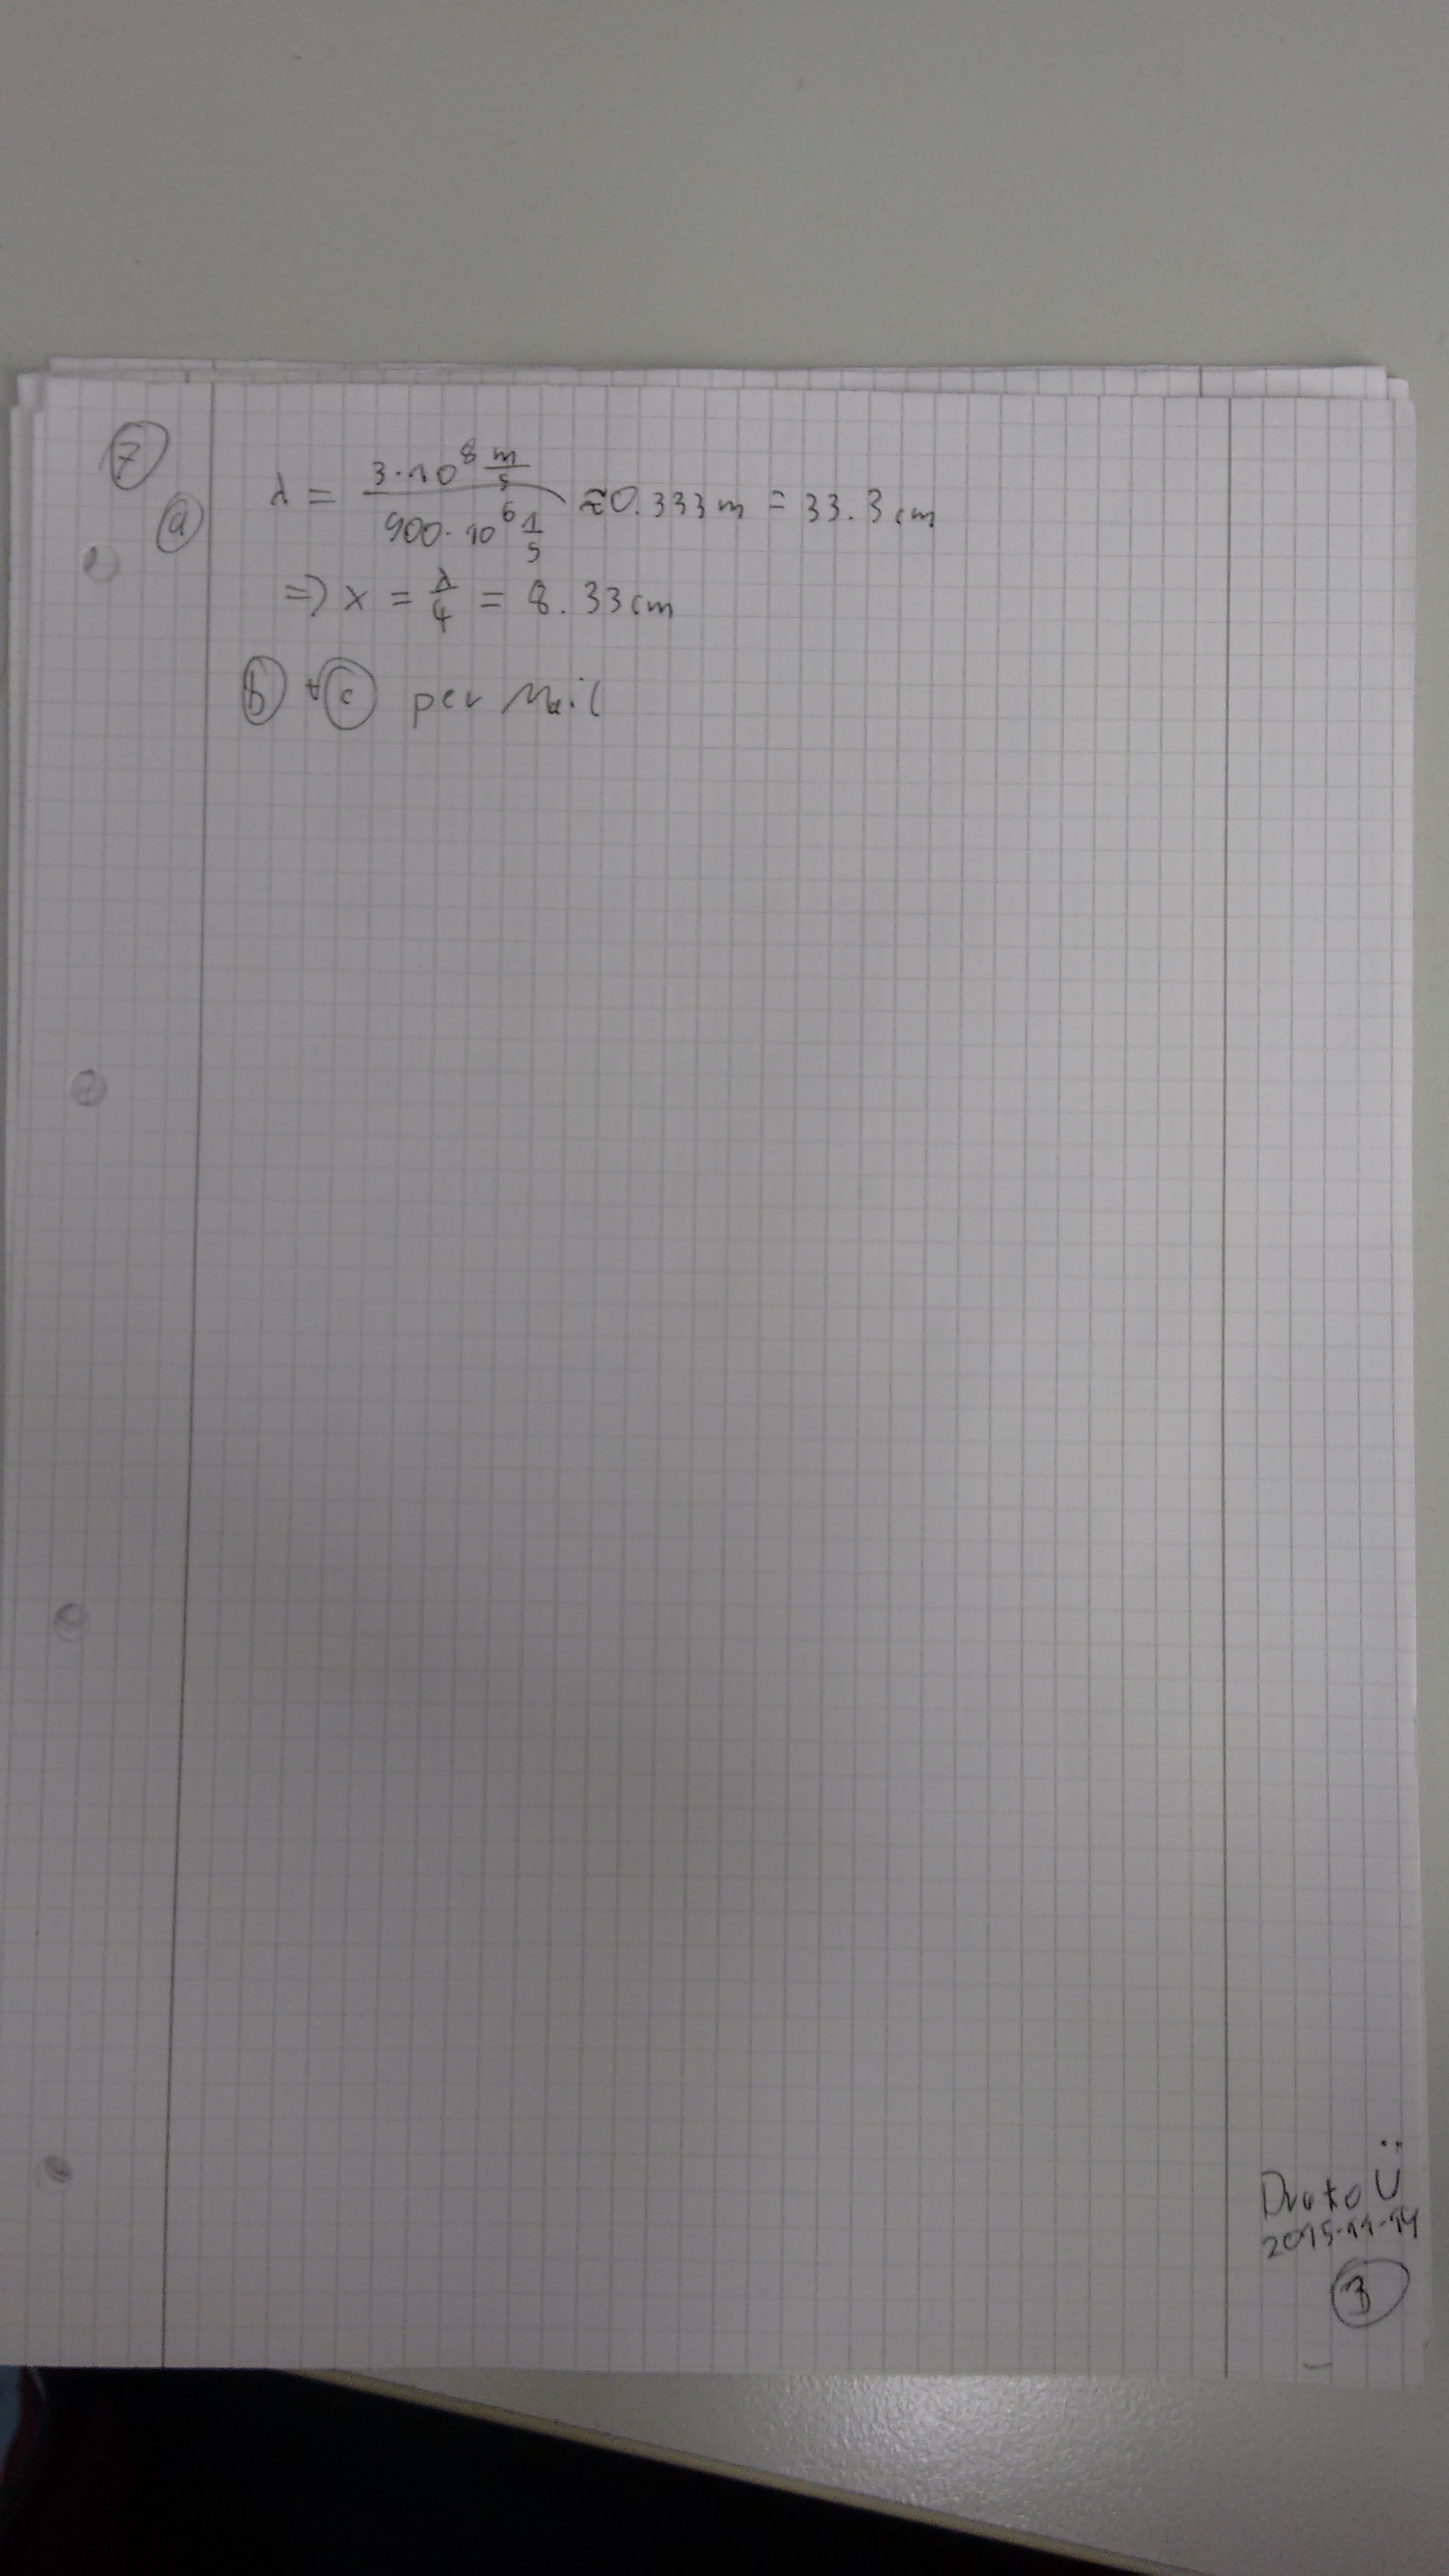 7
a λ = 3·10⁸ m/s / 900·10⁶ 1/s ≈ 0.333 m = 33.3 cm
⇒ x = λ/4 = 8.33 cm
b + c per Mail
2015-11-14
3